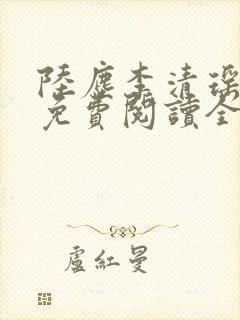 陸塵李清瑤
免費閱讀全
盧紅曼